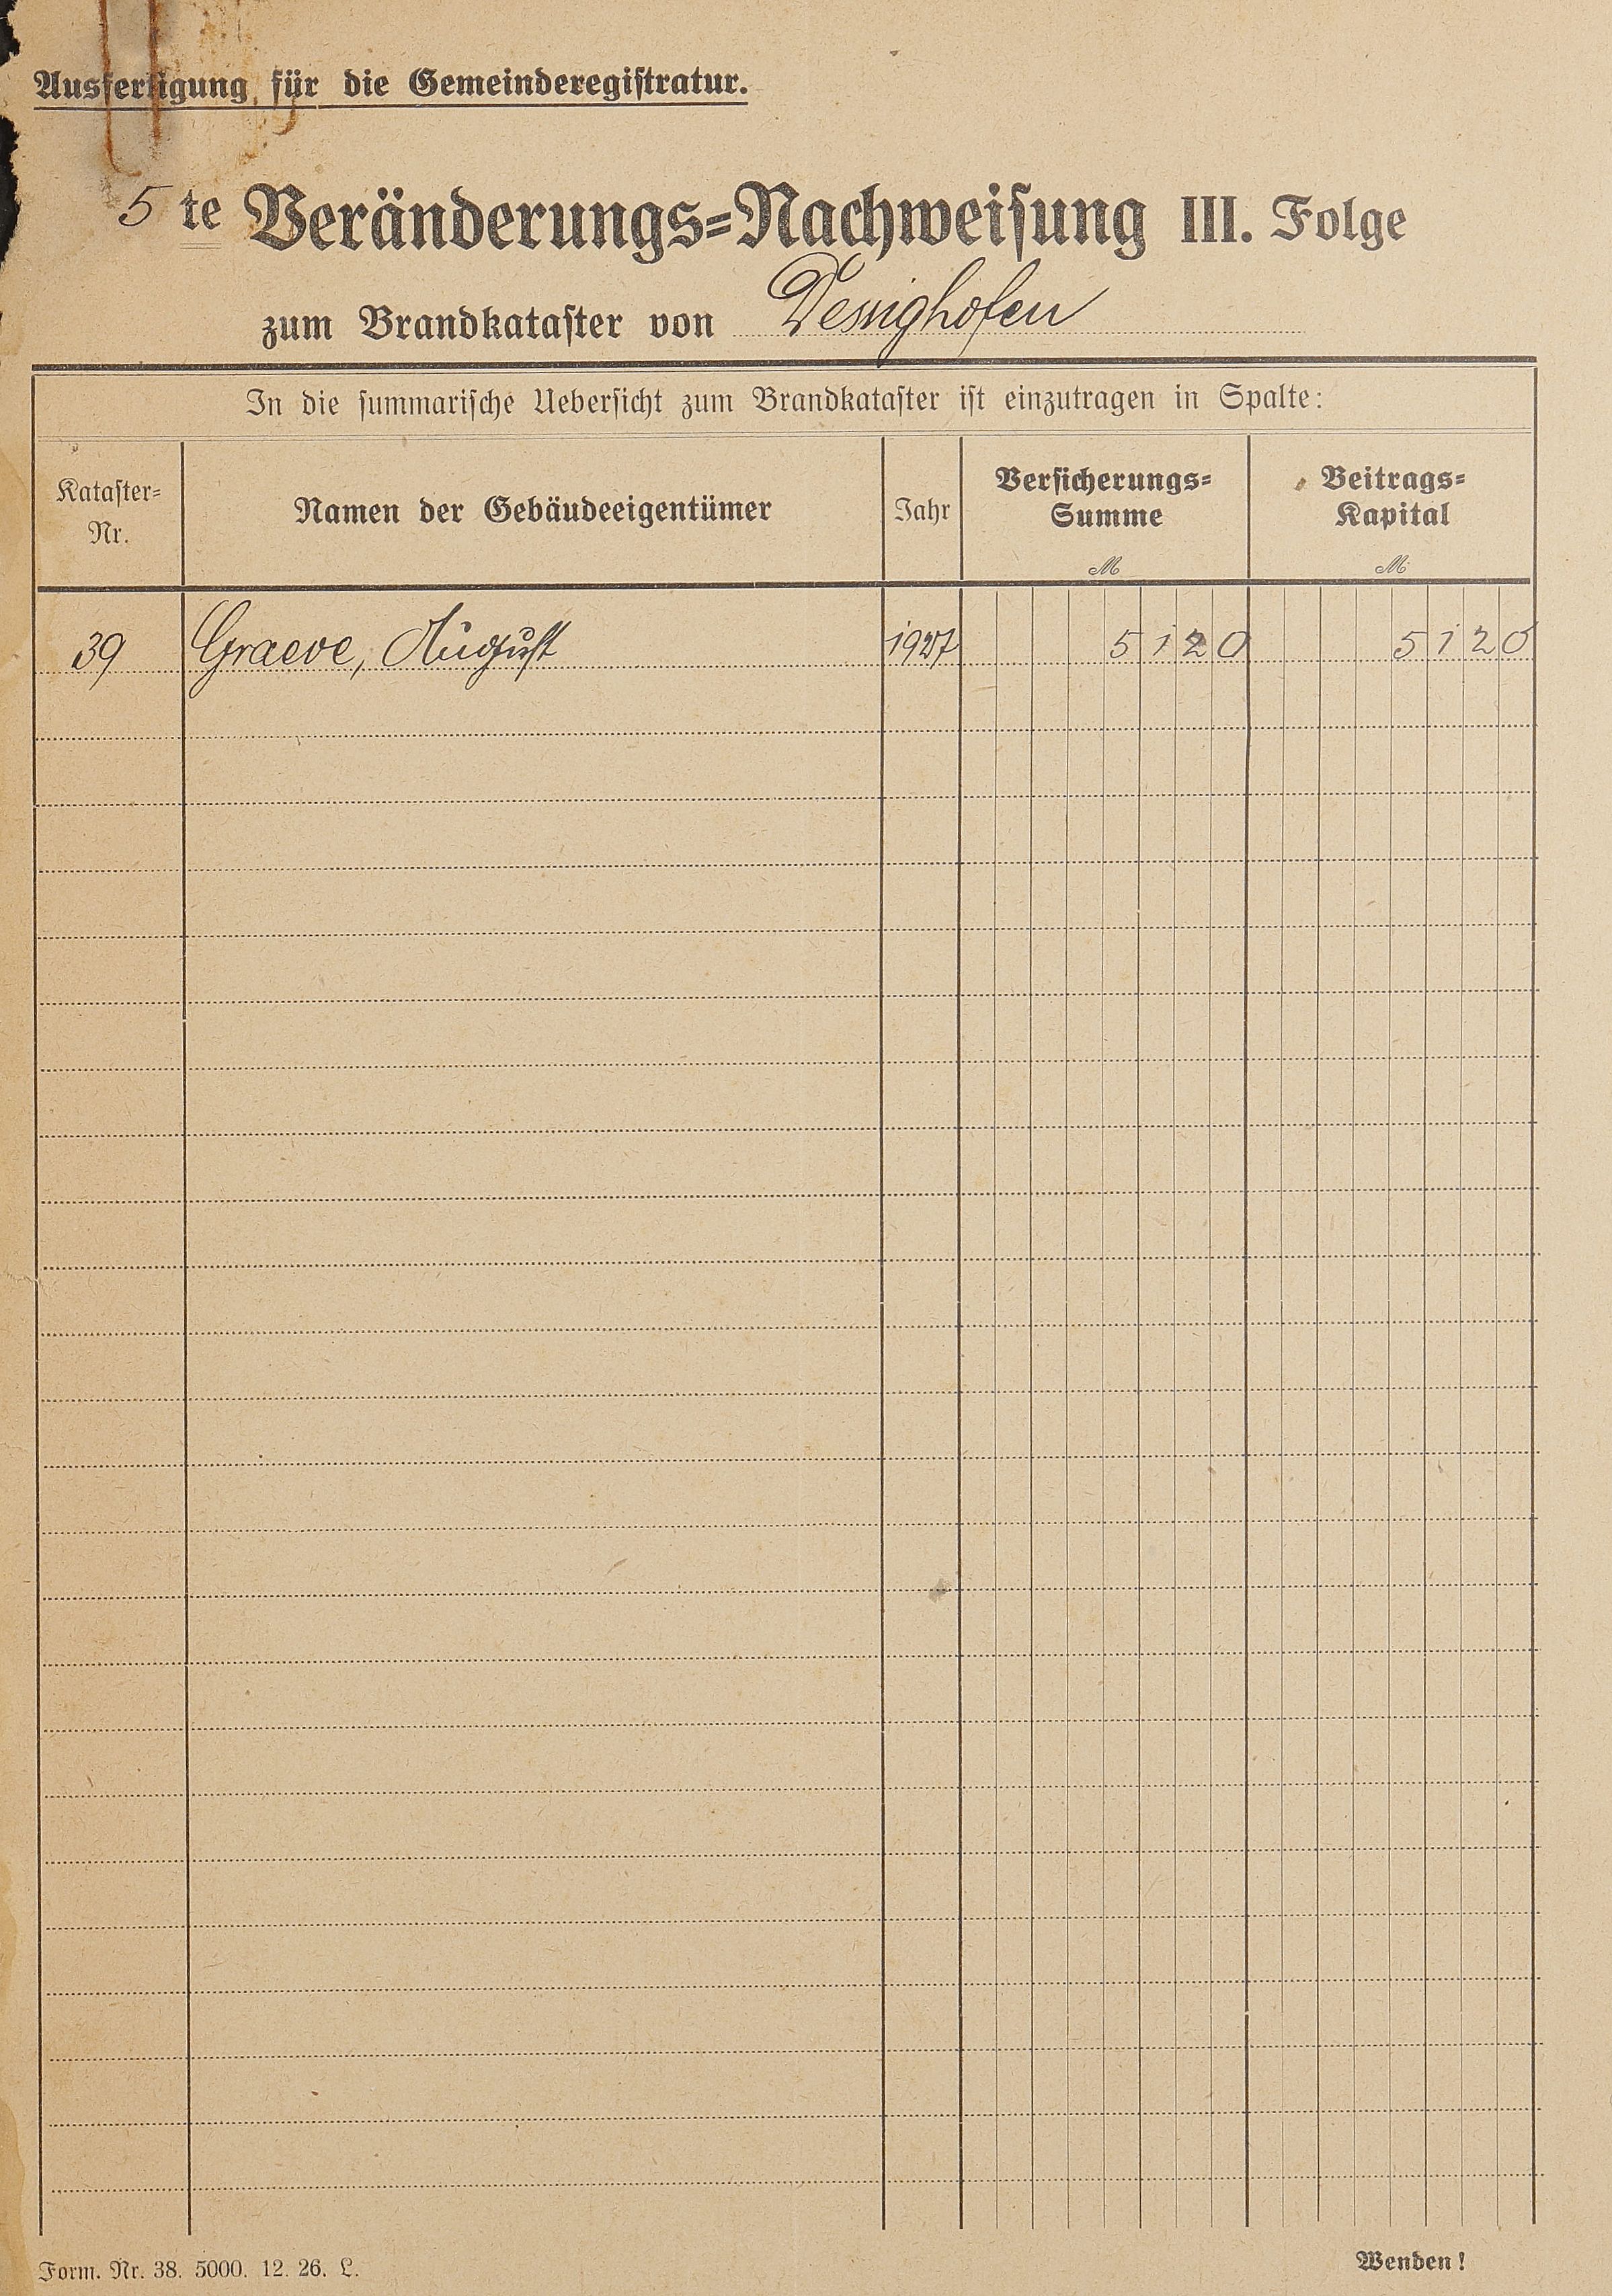 Ausfertigung für die Gemeinderegistratur.
5te Veränderungs=Nachweisung III. Folge
zum Brandkataster von Dessighofen
In die summarische Uebersicht zum Brandkataster ist einzutragen in Spalte:
Kataster=
Nr.
Namen der Gebäudeeigentümer
Jahr
Versicherungs=
Summe
M
Beitrags=
Kapital
M
39 Graeve, August 1927 5120 5120
Form. Nr. 38. 5000. 12. 26. L.
Wenden!